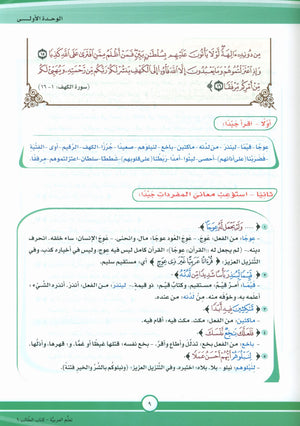 الوحدة الأولى
مِن دُونِهِۦٓ ءَالِهَةً لَّوْلَا يَأْتُونَ عَلَيْهِم بِسُلْطَٰنٍۭ بَيِّنٍ فَمَنْ أَظْلَمُ مِمَّنِ ٱفْتَرَىٰ عَلَى ٱللَّهِ كَذِبًا
وَإِذِ ٱعْتَزَلْتُمُوهُمْ وَمَا يَعْبُدُونَ إِلَّا ٱللَّهَ فَأْوُۥٓا۟ إِلَى ٱلْكَهْفِ يَنشُرْ لَكُمْ رَبُّكُم مِّن رَّحْمَتِهِۦ وَيُهَيِّئْ لَكُم
مِّنْ أَمْرِكُم مِّرْفَقًا
(سورة الكهف: ١-١٦)
أولًا - اقرأ جيّدًا:
عِوَجًا - قَيِّمًا - ليُنذر - من لدُنه - ماكثين - باخع - لنبلوهم - صعيدًا - جُرُزًا - الكهف - الرقيم - أوى - الفتية
فضربنا (على آذانهم) - أحصى - لبثوا - أمدًا - ربطنا (على قلوبهم) - شططًا - سلطان - اعتزلتموهم - مرفقًا.
ثانيًا - استوعب معاني المفردات جيّدًا:
وَلَمْ يَجْعَل لَّهُۥ عِوَجَا
- عوجًا: من الفعل: عَوِجَ. - عَوِجَ العُود عوجًا: مال وانحنى. - عَوِجَ الإنسان: ساء خلقه، انحرف
دينه. - (لم يجعل له (القرآن) عوجًا): القرآن كامل ليس فيه عوج، وليس في أخباره كذب. وفي
التنزيل العزيز: ﴿ قُرْءَانًا عَرَبِيًّا غَيْرَ ذِى عِوَجٍ ﴾ أي: مستقيم سليم.
قَيِّمًا لِّيُنذِرَ بَأْسًا شَدِيدًا مِّن لَّدُنْهُ
- قَيِّمًا: أمر قَيِّم: مستقيم. وكتابٌ قَيِّم: ذو قيمة. - ليُنذر: من الفعل: أنذر. أنذره الشيء:
أعلمه به، وخوّفه منه. من لدنه: من عنده.
مَّٰكِثِينَ فِيهِ أَبَدًا
- ماكثين: من الفعل: مكث. مكث فيه: أقام فيه.
فَلَعَلَّكَ بَٰخِعٌ نَّفْسَكَ
- باخع: من الفعل: بخع، تذلّل وأطاع وأقرّ. - بخع نفسه: قتلها غيظًا أو غمًّا. و: قهرها، وأذلّها.
لِنَبْلُوَهُمْ أَيُّهُمْ أَحْسَنُ عَمَلًا
- لِنَبْلوهم: بلا - نبلو - بلاءً. بلاه: اختبره. وفي التنزيل العزيز: (ونبلوكم بالشرّ والخير فتنة).
٩
تعلّم العربيّة - كتاب الطالب ٦